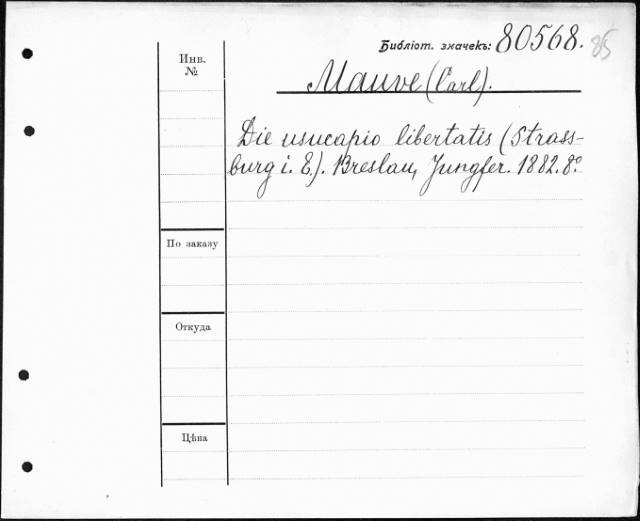 Библіот. значекъ: 80568. 85
Инв.
№
Mauve (Carl).
Die usucapio libertatis (Strass-
burg i. E.). Breslau, Jungfer. 1882. 8°
По заказу
Откуда
Цѣна